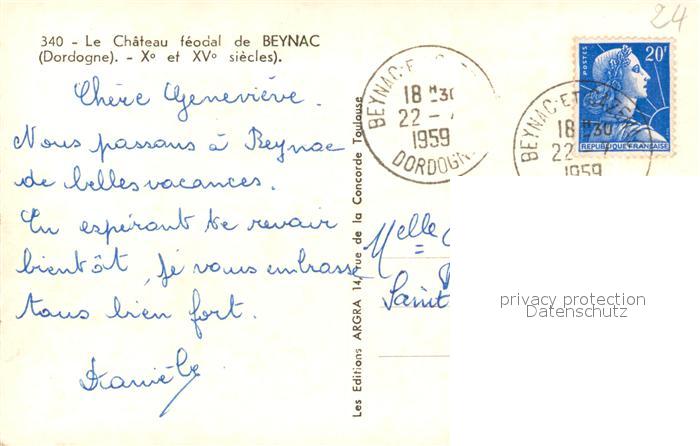 24
340 - Le Château féodal de BEYNAC
(Dordogne). - Xº et XVº siècles).
Chère Geneviève.
Nous passons à Beynac
de belles vacances.
En espérant te revoir
bientôt, je vous embrasse
tous bien fort.
Danièle
Les Editions ARGRA 14, rue de la Concorde Toulouse
BEYNAC-ET-
18 H 30
22 -
1959
DORDOGNE
BEYNAC-ET-
18 H 30
22
1959
POSTES
20F
REPUBLIQUE FRANÇAISE
Melle
Saint
privacy protection
Datenschutz